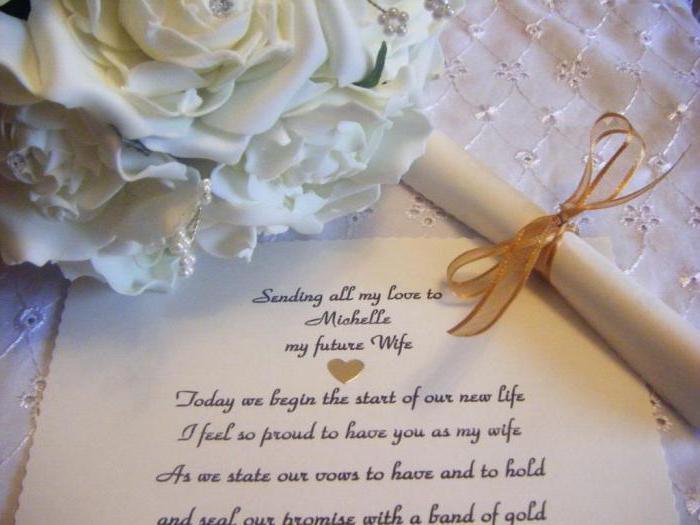 Sending all my love to
Michelle
my future Wife
Today we begin the start of our new life
I feel so proud to have you as my wife
As we state our vows to have and to hold
and seal our promise with a band of gold